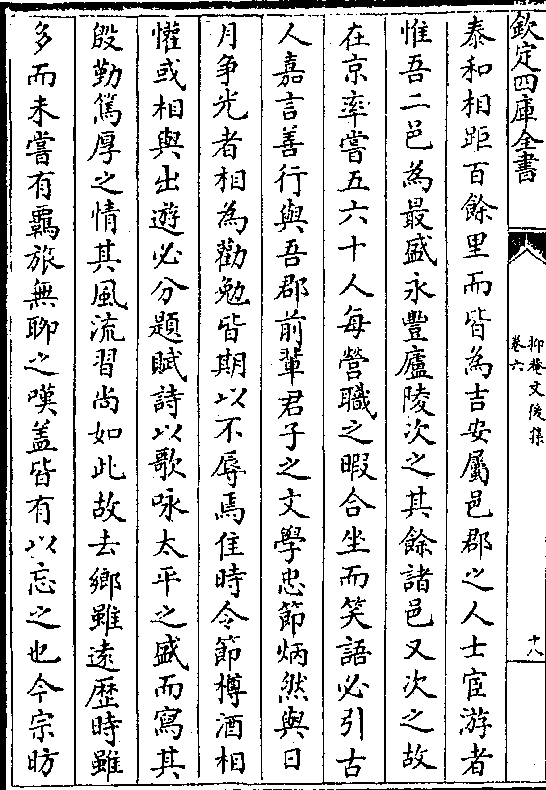 欽定四庫全書
抑菴文後集
卷六
十八
泰和相距百餘里而皆為吉安屬邑郡之人士宦游者
惟吾二邑為最盛永豐廬陵次之其餘諸邑又次之故
在京率嘗五六十人每營職之暇合坐而笑語必引古
人嘉言善行與吾郡前輩君子之文學忠節炳然與日
月爭光者相為勸勉皆期以不辱焉佳時令節樽酒相
懽或相與出遊必分題賦詩以歌咏太平之盛而寫其
殷勤篤厚之情其風流習尚如此故去鄉雖逺歴時雖
多而未嘗有羈旅無聊之嘆盖皆有以忘之也今宗昉